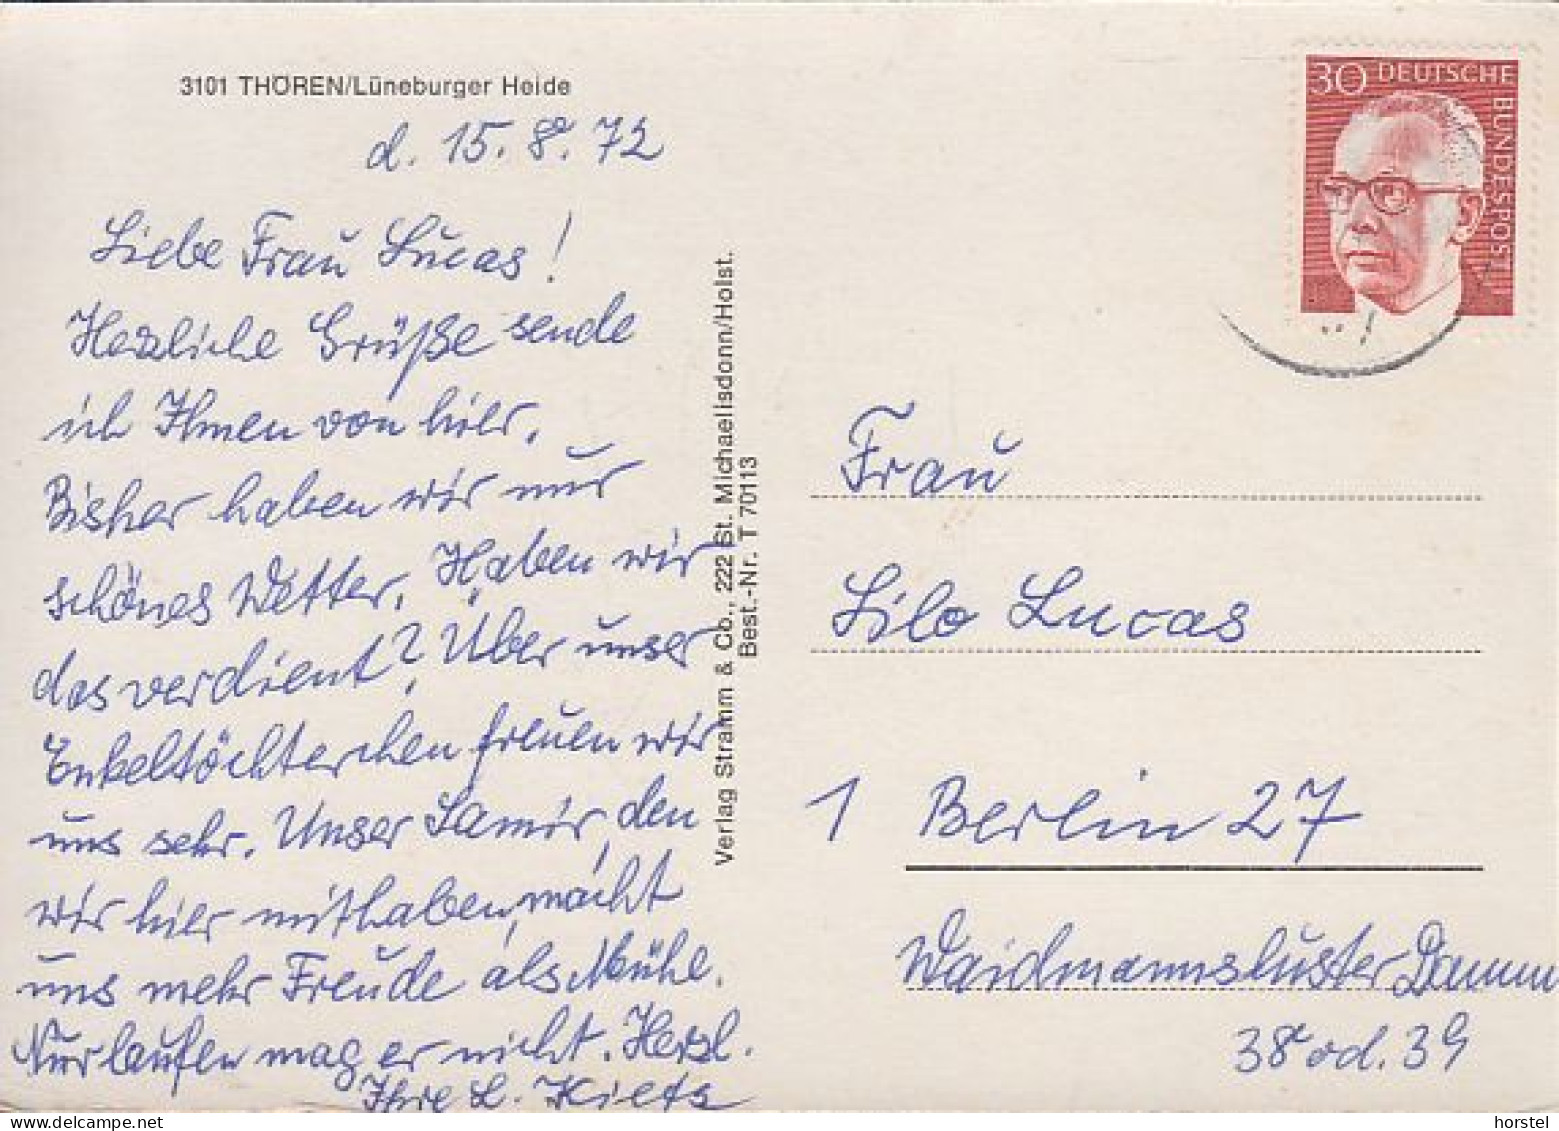 3101 THÖREN/Lüneburger Heide
d. 15. 8. 72
Liebe Frau Lucas!
Herzliche Grüße sende
ich Ihnen von hier.
Bisher haben wir nur
schönes Wetter. Haben wir
das verdient? Über unser
Enkeltöchterchen freuen wir
uns sehr. Unser Samir, den
wir hier mithaben, macht
uns mehr Freude als Mühe.
Nur laufen mag er nicht. Herzl.
Ihre L.
Verlag Stramm & Co., 222 St. Michaelisdonn/Holst.
Best.-Nr. T 70113
30 DEUTSCHE BUNDESPOST
Frau
Lilo Lucas
1 Berlin 27
Waidmannsluster Damm
38 od. 39
horstel